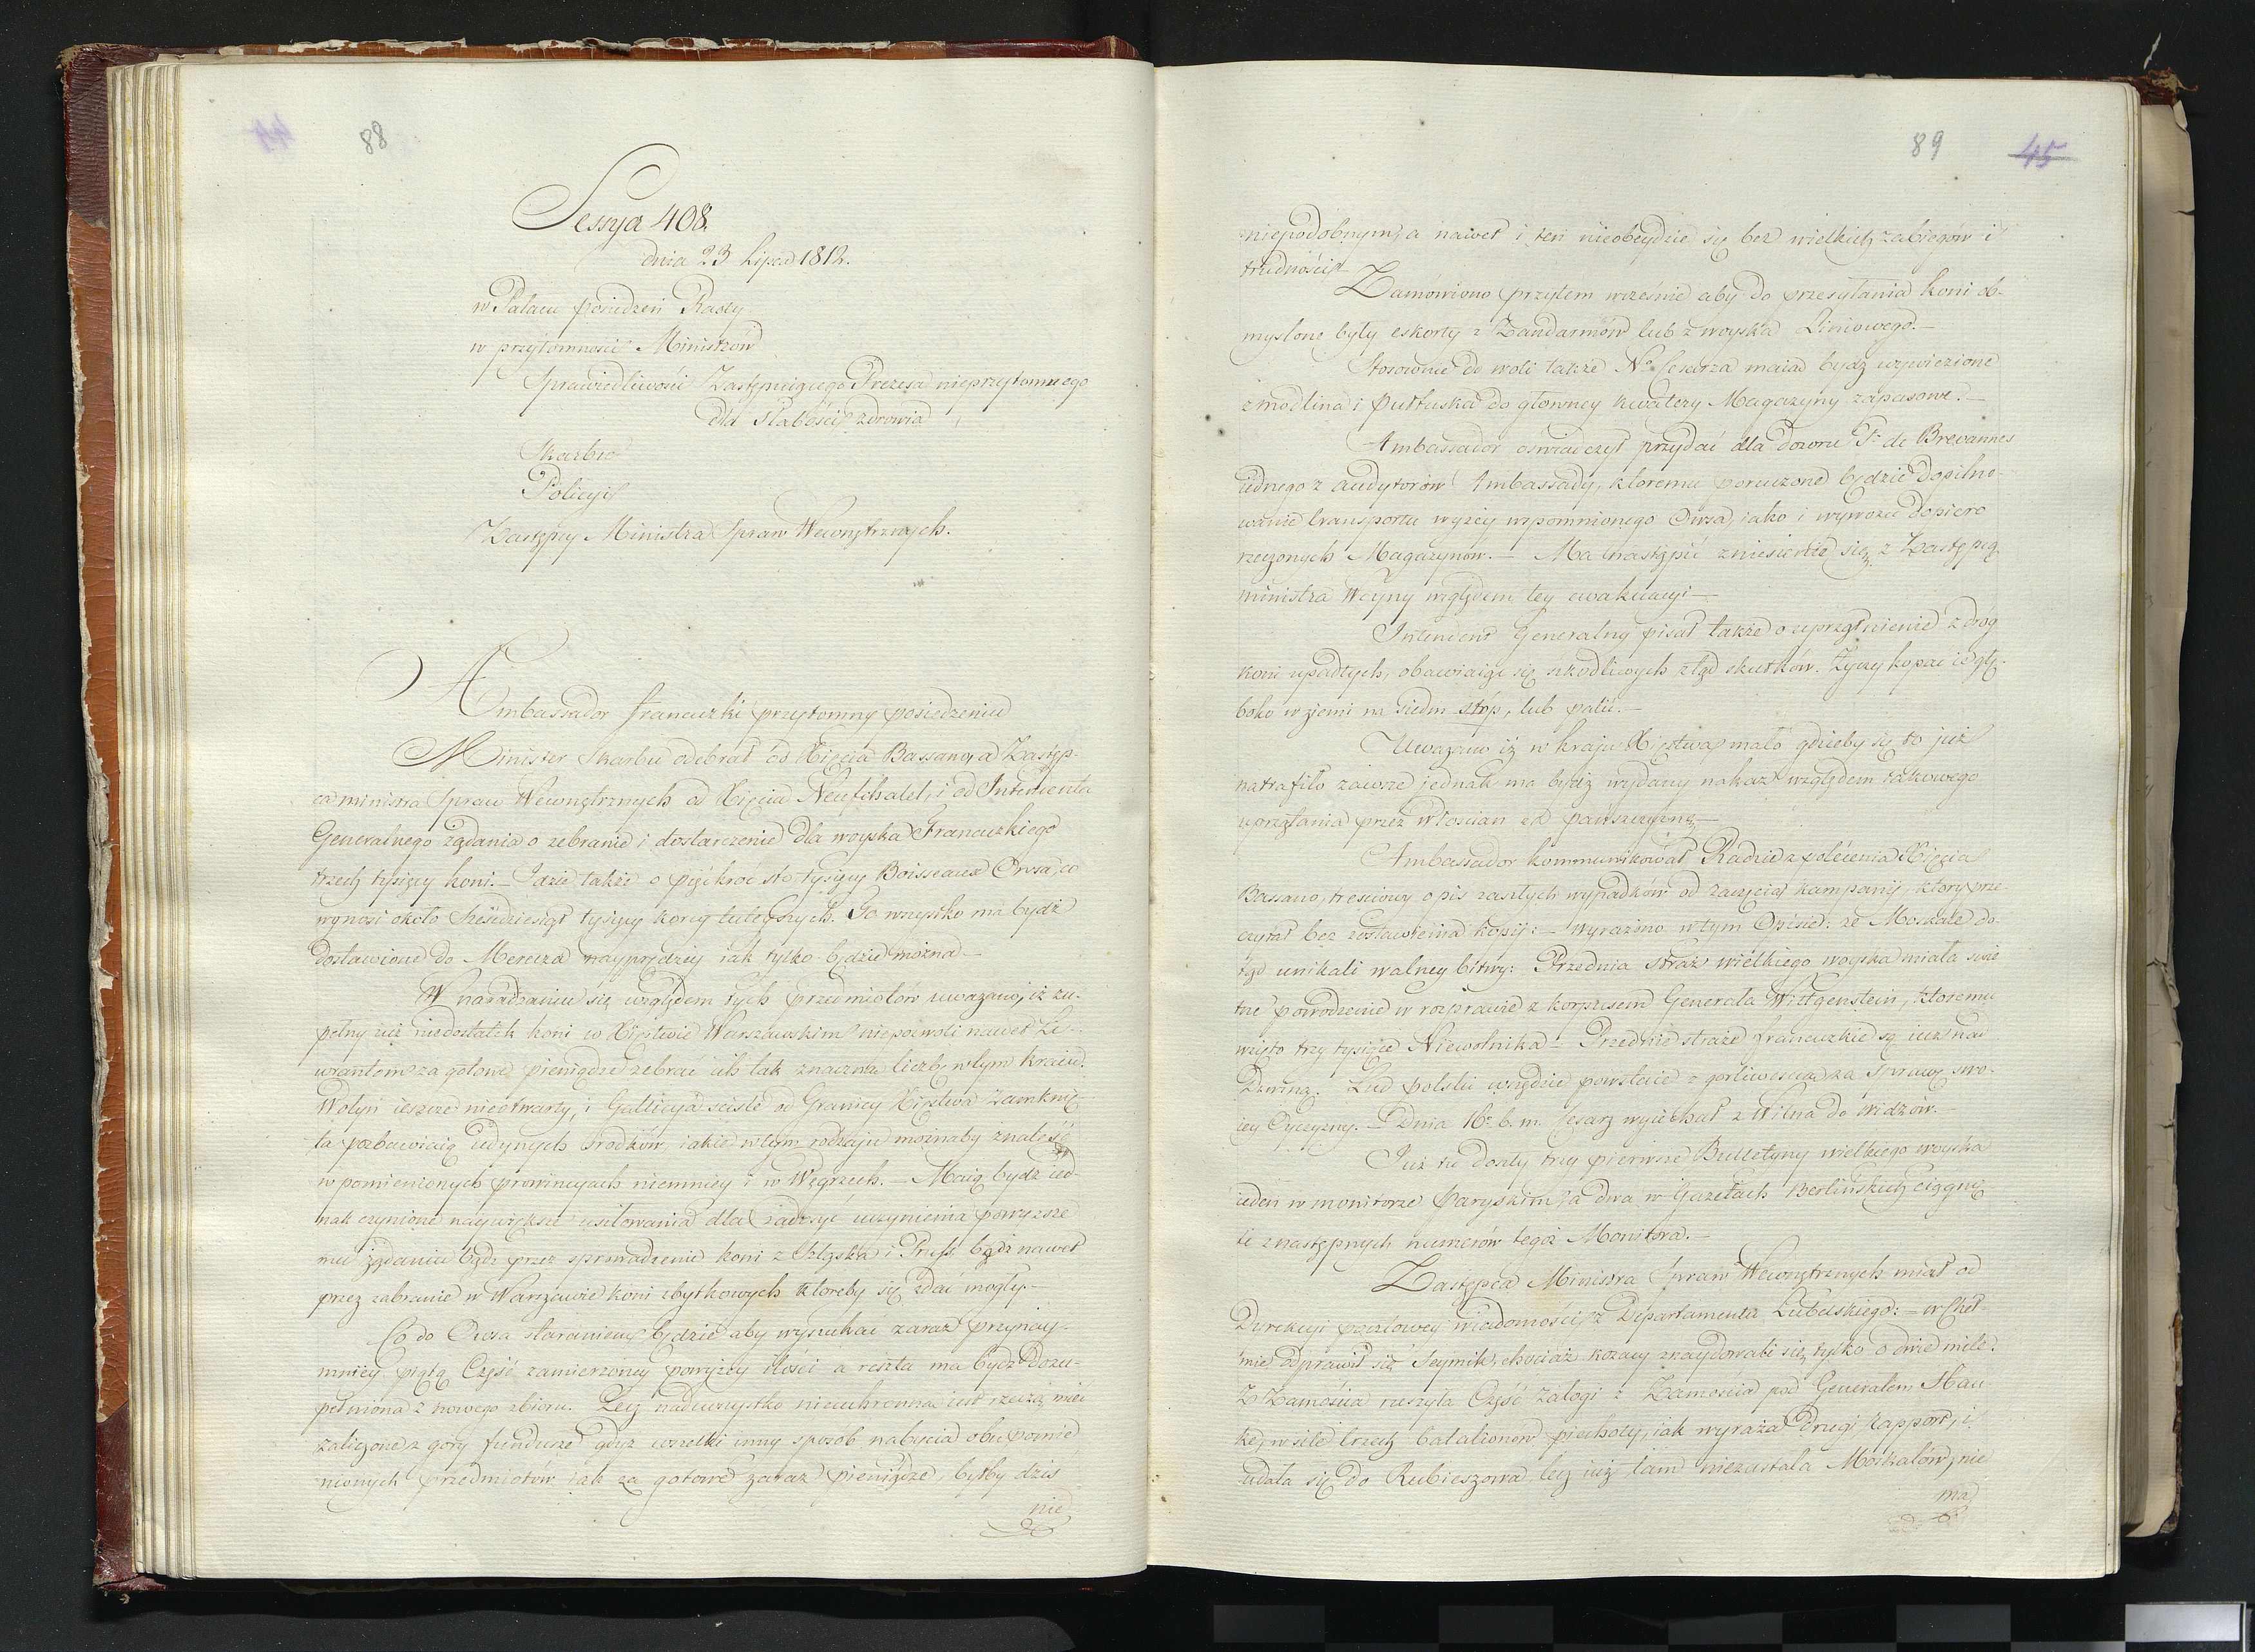 88
Sessya 408.
dnia 23 Lipca 1812.
w Pałacu posiedzeń Rady
w przytomności Ministrów
Sprawiedliwości Zastępuiącego Prezesa nieprzytomnego
dla słabości zdrowia
Skarbu
Policyi
Zastępcy Ministra Spraw Wewnętrznych.
Ambassador francuzki przytomny posiedzeniu
Minister Skarbu odebrał od Xięcia Bassano, a Zastęp-
ca ministra Spraw Wewnętrznych od Xięcia Neufchatel, i od Intendenta
Generalnego żądania o zebranie i dostarczenie dla woyska Francuzkiego
trzech tysięcy koni. – Idzie także o pięćkroć sto tysięcy Boisseaux Owsa, co
wynosi około sześćdziesiąt tysięcy korcy tuteyszych. To wszystko ma bydź
dostawione do Merecza nayprędzey iak tylko będzie można –
W naradzaniu się względem tych przedmiotów uważano, iż zu-
pełny iuż niedostatek koni w Xięstwie Warszawskim niepozwoli nawet Li-
werantom za gotowe pieniądze zebrać ich tak znaczną liczbę w tym kraiu.
Wołyń ieszcze nieotwarty, i Gallicya ściśle od Granicy Xięstwa zamknię-
ta pozbawiaią iedynych srodków, iakie w tym rodzaju możnaby znaleść
w pomienionych prowincyach niemniey i w Węgrzech. – Maią bydź ied-
nak czynione naywiększe usiłowania dla zadosyć uczynienia powyższe-
mu żądaniu bądź przez sprowadzenie koni z Szląska i Pruss bądź nawet
przez zabranie w Warszawie koni zbytkowych któreby się zdać mogły. –
Co do Owsa staraniem będzie aby wyszukać zaraz przynay-
mniey piątą Część zamierzoney powyżey ilości a reszta ma bydź dozu-
pełniona z nowego zbioru. Lecz nadewszystko nieuchronna iest rzeczą mieć
zaliczone z góry fundusze gdyż wszelki inny sposob nabycia obu pomie-
nionych przedmiotów iak za gotowe zaraz pieniądze, byłby dziś
nie-
89 45
niepodobnym, a nawet i ten nieobeydzie się bez wielkich zabiegów i
trudności –
Zamówiono przytem wcześnie aby do przesyłania koni ob-
myslone były eskorty z Żandarmów lub z woyska Liniowego. –
Stosownie do woli także N. Cesarza maią bydź wywiezione
z Modlina i Pułtuska do główney kwatery Magazyny zapasowe. –
Ambassador oświadczył przydać dla dozoru P. de Brevannes
iednego z audytorów Ambassady, któremu poruczone będzie dopilno-
wanie transportu wyżey wspomnionego Owsa, iako i wywozu dopiero
rzeczonych Magazynów. – Ma nastąpić zniesienie się z Zastępcą
ministra Woyny względem tey ewakuacyi –
Intendent Generalny pisał także o uprzątnienie z dróg
koni upadłych, obawiaiąc się szkodliwych ztąd skutków. Życzy kopać ie głę-
boko w ziemi na siedm stóp, lub palić. –
Uważano iż w kraju Xięstwa mało gdzieby się to już
natrafiło zawsze jednak ma bydź wydany nakaz względem takowego
uprzątania przez włościan za pańszczyznę –
Ambassador kommunikował Radzie z polecenia Xięcia
Bassano, treściowy opis zaszłych wypadków od zaczęcia kampanij, który prze-
czytał bez zostawienia kopij: – wyrażono w tym Opisie: że Moskale do-
tąd unikali walney bitwy: Przednia straż wielkiego woyska miała świe-
tne powodzenie w rozprawie z korpusem Generała Wittgenstein, któremu
wzięto trzy tysiące Niewolnika – Przednie straże francuzkie są iuż nad
Dzwiną. Lud polski wszędzie powstaie z gorliwością za Sprawę swo-
iey Oyczyzny. – Dnia 16. b. m. Cesarz wyiechał z Wilna do Widzów. –
Już tu doszły trzy pierwsze Bulletyny wielkiego woyska
ieden w monitorze Paryskim, a dwa w Gazetach Berlińskich ciągnię-
te z następnych numerów tegoż Monitora. –
Zastępca Ministra Spraw Wewnętrznych miał od
Dyrekcyi pocztowey wiadomości z Departamentu Lubelskiego: – w Cheł-
mie odprawił się Seymik, chociaż kozacy znaydowali się tylko o dwie mile.
Z Zamościa ruszyła Część załogi z Zamościa pod Generałem Hau-
ke, w sile trzech batalionów piechoty, iak wyraża drugi rapport, i
udała się do Rubieszowa lecz iuż tam niezastała Moskalów, nie
ma